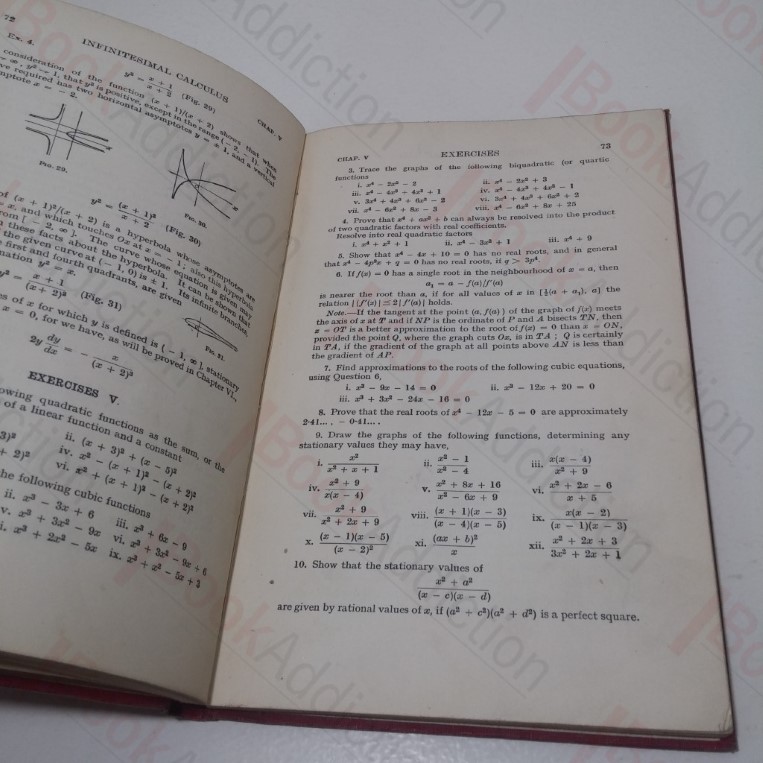 72
INFINITESIMAL CALCULUS
CHAP. V
Ex. 4.
y² = (x + 1)/(x + 2) (Fig. 29)
consideration of the function (x + 1)/(x + 2) shows that when
∞, y² → 1, that y² is positive, except in the range (− 2, − 1). The
ve required has two horizontal asymptotes y = ± 1, and a vertical
mptote x = − 2.
FIG. 29.
FIG. 30.
y² = (x + 1)²/(x + 2) (Fig. 30)
of (x + 1)²/(x + 2) is a hyperbola whose asymptotes are
= x, and which touches Ox at x = − 1; also this hyperbola
from [− 2, ∞]. The curve whose equation is given may
these facts about the hyperbola. It can be shown that
the given curve at (− 1, 0) is ± 1. Its infinite branches,
first and fourth quadrants, are given
uation y² = x.
y² = (x + 1)/(x + 2)² (Fig. 31)
FIG. 31.
es of x for which y is defined is (− 1, ∞), stationary
x = 0, for we have, as will be proved in Chapter VI.,
2y dy/dx = − x/(x + 2)³
EXERCISES V.
owing quadratic functions as the sum, or the
of a linear function and a constant
3)² ii. (x + 3)² + (x − 5)²
+ 2)² iv. x² − (x + 1)² − (x + 2)²
vi. x² + (x + 1)² − (x + 2)²
he following cubic functions
ii. x³ − 3x + 6 iii. x³ + 6x − 9
v. x³ + 3x² − 9x vi. x³ + 3x² − 9x + 6
i. x³ + 2x² − 5x ix. x³ + x² − 5x + 3
CHAP. V EXERCISES 73
3. Trace the graphs of the following biquadratic (or quartic
functions
i. x⁴ − 2x² − 2 ii. x⁴ − 2x² + 3
iii. x⁴ − 4x³ − 4x² + 1 iv. x⁴ − 4x³ + 4x² − 1
v. 3x⁴ + 4x³ + 6x² − 2 vi. 3x⁴ + 4x³ + 6x² + 2
vii. x⁴ − 6x² + 8x − 3 viii. x⁴ − 6x² + 8x + 25
4. Prove that x⁴ + ax² + b can always be resolved into the product
of two quadratic factors with real coefficients.
Resolve into real quadratic factors
i. x⁴ + x² + 1 ii. x⁴ − 3x² + 1 iii. x⁴ + 9
5. Show that x⁴ − 4x + 10 = 0 has no real roots, and in general
that x⁴ − 4p³x + q = 0 has no real roots, if q > 3p⁴.
6. If f(x) = 0 has a single root in the neighbourhood of x = a, then
a₁ = a − f(a)/f′(a)
is nearer the root than a, if for all values of x in [½(a + a₁), a] the
relation | f′(x) | ≤ 2 | f′(a) | holds.
Note.—If the tangent at the point (a, f(a)) of the graph of f(x) meets
the axis of x at T and if NP is the ordinate of P and A bisects TN, then
x = OT is a better approximation to the root of f(x) = 0 than x = ON,
provided the point Q, where the graph cuts Ox, is in TA; Q is certainly
in TA, if the gradient of the graph at all points above AN is less than
the gradient of AP.
7. Find approximations to the roots of the following cubic equations,
using Question 6,
i. x³ − 9x − 14 = 0 ii. x³ − 12x + 20 = 0
iii. x³ + 3x² − 24x − 16 = 0
8. Prove that the real roots of x⁴ − 12x − 5 = 0 are approximately
2·41..., − 0·41....
9. Draw the graphs of the following functions, determining any
stationary values they may have,
i. x²/(x² + x + 1) ii. (x² − 1)/(x² − 4) iii. x(x − 4)/(x² + 9)
iv. (x² + 9)/(x(x − 4)) v. (x² + 8x + 16)/(x² − 6x + 9) vi. (x² + 2x − 6)/(x + 5)
vii. (x² + 9)/(x² + 2x + 9) viii. (x + 1)(x − 3)/((x − 4)(x − 5)) ix. x(x − 2)/((x − 1)(x − 3))
x. (x − 1)(x − 5)/(x − 2)² xi. (ax + b)²/x xii. (x² + 2x + 3)/(3x² + 2x + 1)
10. Show that the stationary values of
(x² + a²)/((x − c)(x − d))
are given by rational values of x, if (a² + c²)(a² + d²) is a perfect square.
BookAddiction